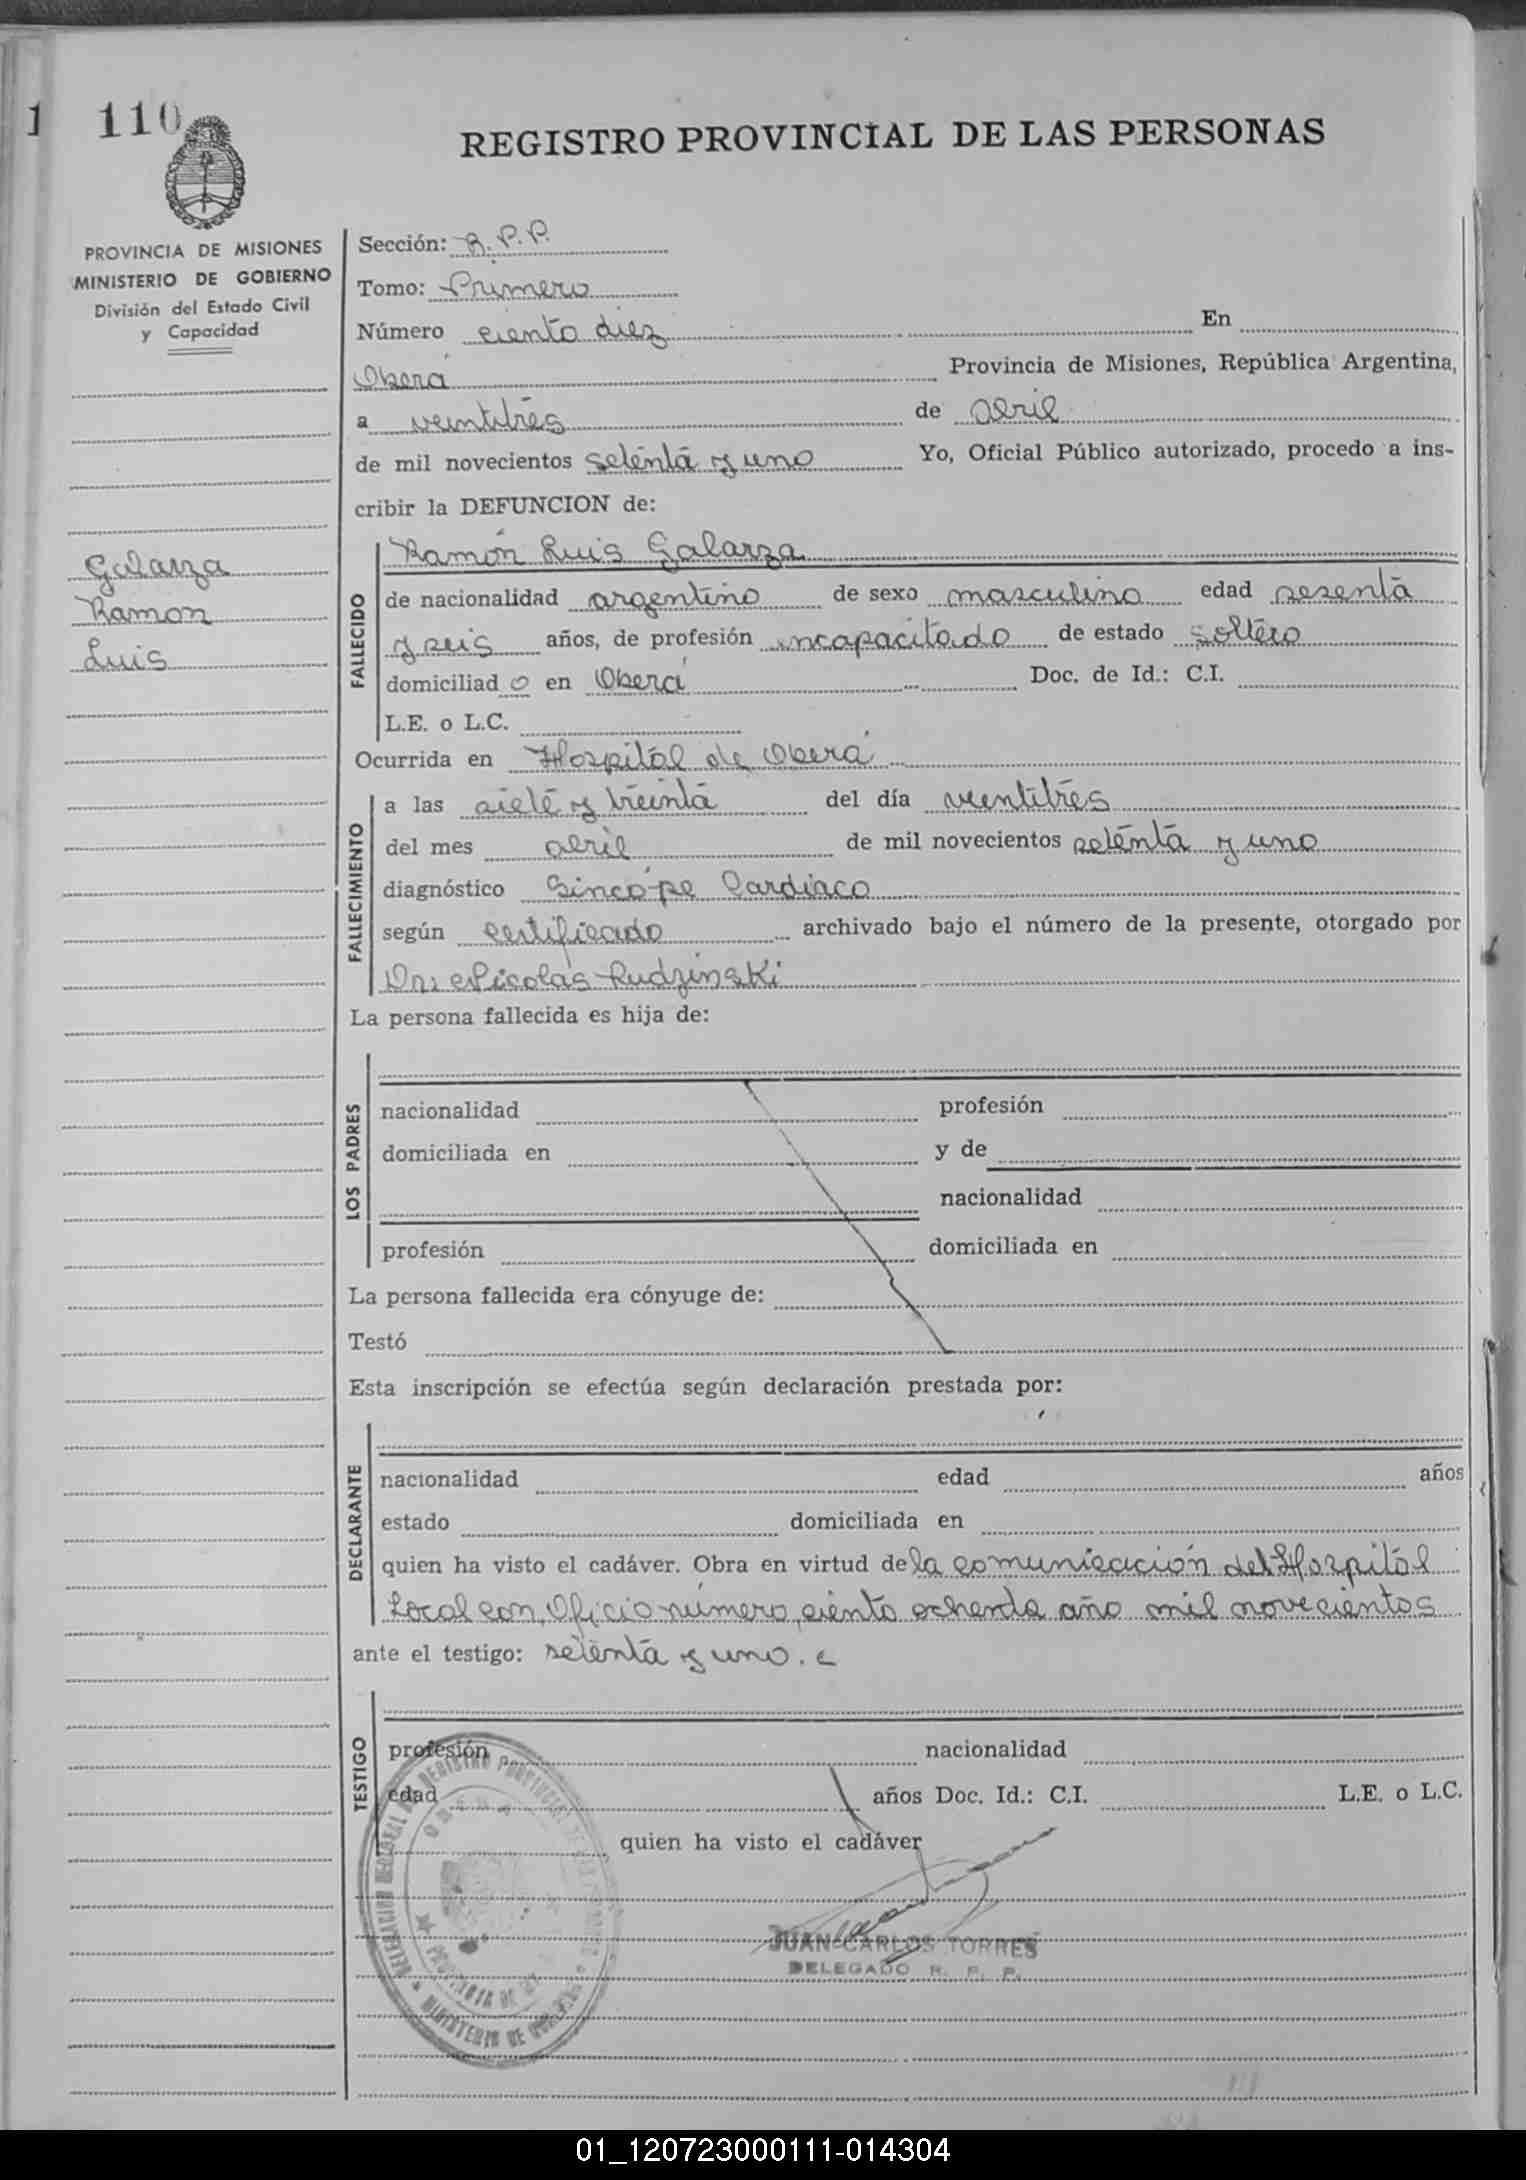 1 110
REGISTRO PROVINCIAL DE LAS PERSONAS
PROVINCIA DE MISIONES
MINISTERIO DE GOBIERNO
División del Estado Civil
y Capacidad
Galarza
Ramon
Luis
Sección: R.P.P.
Tomo: Primero
Número ciento diez En
Oberá Provincia de Misiones, República Argentina,
a veintitrés de abril
de mil novecientos setenta y uno Yo, Oficial Público autorizado, procedo a ins-
cribir la DEFUNCION de:
FALLECIDO
Ramón Luis Galarza
de nacionalidad argentino de sexo masculino edad sesenta
y seis años, de profesión incapacitado de estado soltero
domiciliado en Oberá Doc. de Id.: C.I.
L.E. o L.C.
Ocurrida en Hospital de Oberá
FALLECIMIENTO
a las siete y treinta del día veintitrés
del mes abril de mil novecientos setenta y uno
diagnóstico Sincope Cardiaco
según certificado archivado bajo el número de la presente, otorgado por
Dr. Nicolás Rudzinski
La persona fallecida es hija de:
LOS PADRES
nacionalidad profesión
domiciliada en y de
nacionalidad
profesión domiciliada en
La persona fallecida era cónyuge de:
Testó
Esta inscripción se efectúa según declaración prestada por:
DECLARANTE
nacionalidad edad años
estado domiciliada en
quien ha visto el cadáver. Obra en virtud de la comunicación del Hospital
Local con Oficio número ciento ochenta año mil novecientos
ante el testigo: setenta y uno.
TESTIGO
profesión nacionalidad
edad años Doc. Id.: C.I. L.E. o L.C.
quien ha visto el cadáver
JUAN CARLOS TORRES
DELEGADO R. P. P.
OBERA
PROVINCIA DE
MINISTERIO DE
01_120723000111-014304